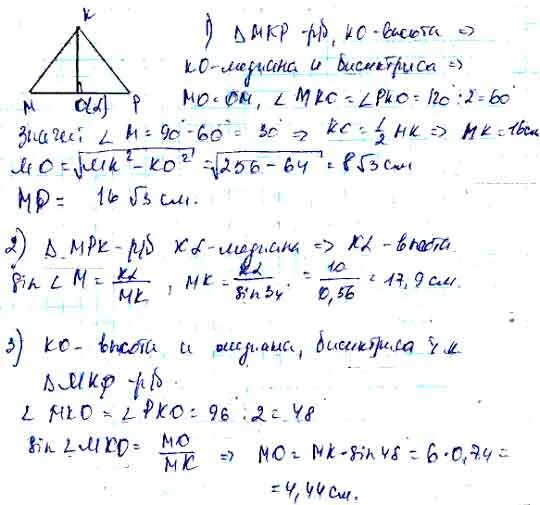 K
M O(L) P
1) Δ MKP - р/б, KO - высота =>
KO - медиана и биссектриса =>
MO = OM, ∠ MKO = ∠PKO = 120° : 2 = 60°
Значит ∠ M = 90° - 60° = 30° => KC = 1/2 MK => MK = 16см
MO = √MK² - KO² = √256 - 64 = 8√3 см
MP = 16 √3 см.
2) Δ MPK - р/б KL - медиана => KL - высота
sin ∠ M = KL/MK , MK = KL/sin 34 = 10/0,56 = 17,9 см.
3) KO - высота и медиана, биссектриса т.к
Δ MKP - р/б.
∠ MKO = ∠ PKO = 96 : 2 = 48
sin ∠MKO = MO/MK => MO = MK · sin 48 = 6 · 0,74 =
= 4,44 см.